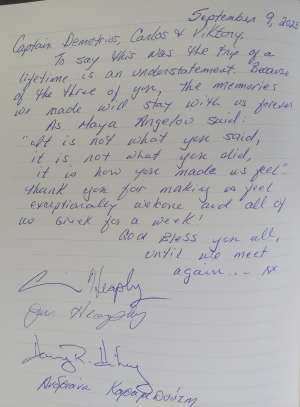 September 9, 2023
Captain Demetrios, Carlos & Viktory.
To say this was the trip of a
lifetime is an understatement. Because
of the three of you, the memories
we made will stay with us forever
As Maya Angelou said:
"It is not what you said,
it is not what you did,
it is how you made us feel"
Thank you for making us feel
exceptionally welcome and all of
us Greek for a week!
God Bless you all,
until we meet
again...
Heaphy
Heaphy